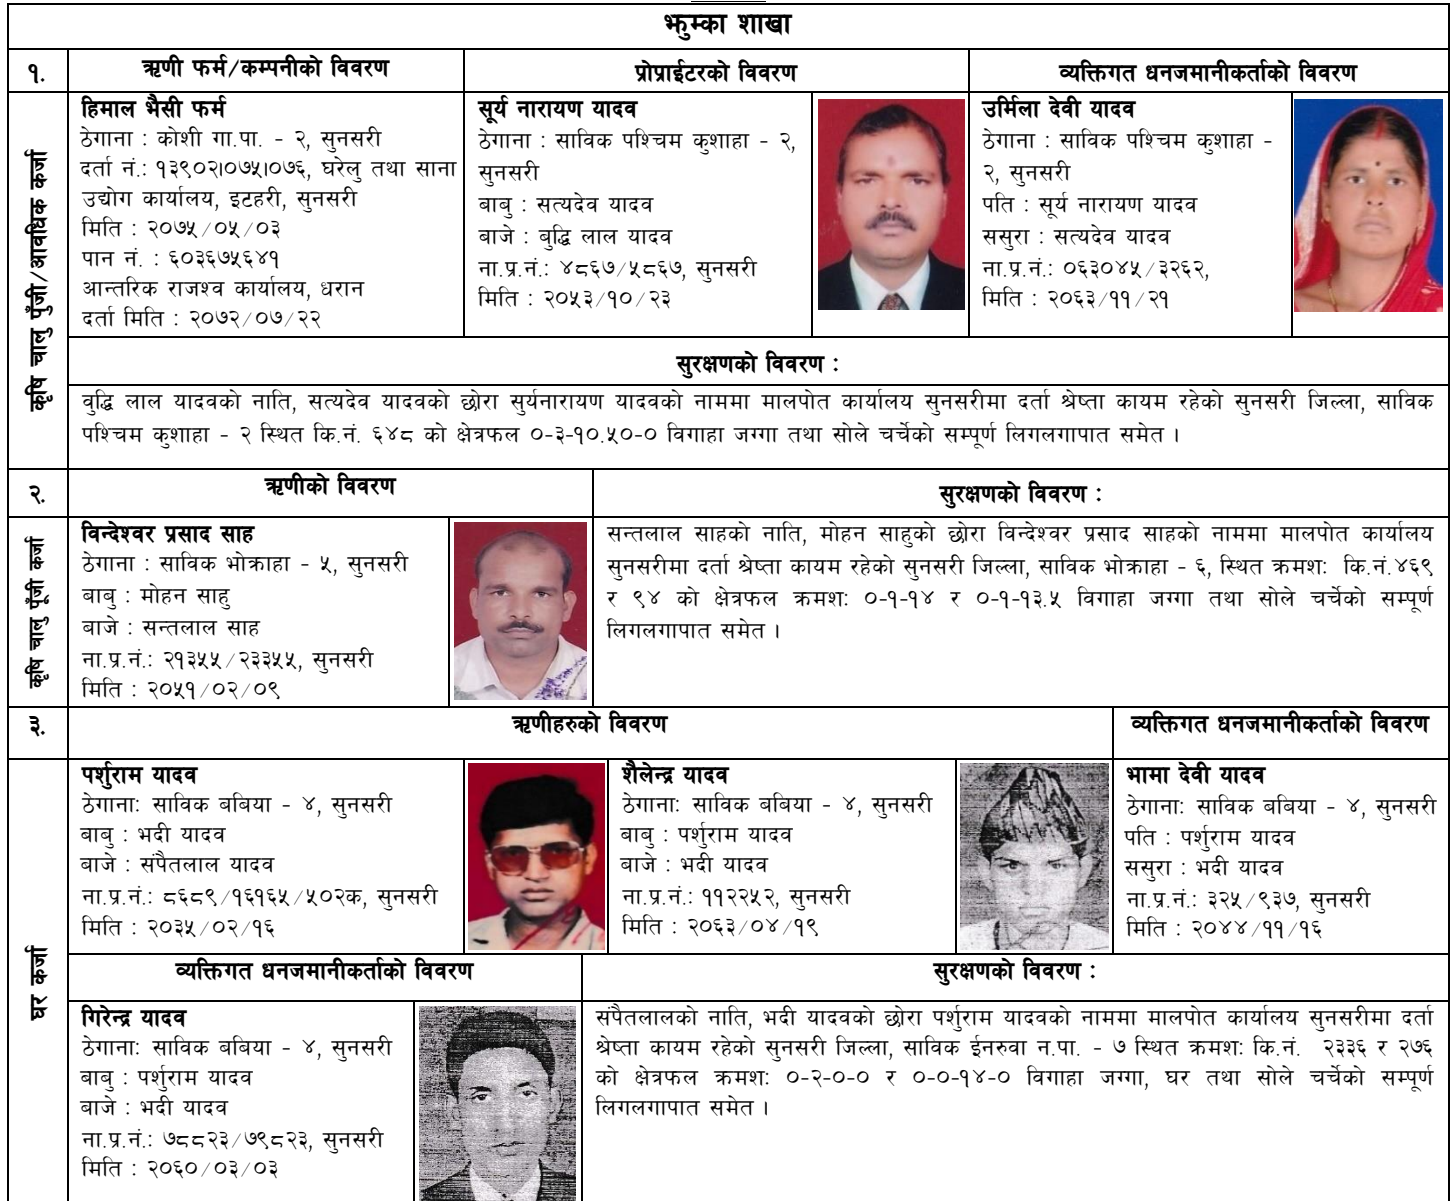 झुम्का शाखा
१.
ऋणी फर्म/कम्पनीको विवरण
प्रोप्राईटरको विवरण
व्यक्तिगत धनजमानीकर्ताको विवरण
कृषि चालु पूँजी/आवधिक कर्जा
हिमाल भैसी फर्म
ठेगाना : कोशी गा.पा. - २, सुनसरी
दर्ता नं.: १३९०२।०७५।०७६, घरेलु तथा साना
उद्योग कार्यालय, इटहरी, सुनसरी
मिति : २०७५/०५/०३
पान नं. : ६०३६७५६४१
आन्तरिक राजश्व कार्यालय, धरान
दर्ता मिति : २०७२/०७/२२
सूर्य नारायण यादव
ठेगाना : साविक पश्चिम कुशाहा - २,
सुनसरी
बाबु : सत्यदेव यादव
बाजे : बुद्धि लाल यादव
ना.प्र.नं.: ४८६७/५८६७, सुनसरी
मिति : २०५३/१०/२३
उर्मिला देवी यादव
ठेगाना : साविक पश्चिम कुशाहा -
२, सुनसरी
पति : सूर्य नारायण यादव
ससुरा : सत्यदेव यादव
ना.प्र.नं.: ०६३०४५/३२६२,
मिति : २०६३/११/२१
सुरक्षणको विवरण :
वुद्धि लाल यादवको नाति, सत्यदेव यादवको छोरा सुर्यनारायण यादवको नाममा मालपोत कार्यालय सुनसरीमा दर्ता श्रेष्ता कायम रहेको सुनसरी जिल्ला, साविक
पश्चिम कुशाहा - २ स्थित कि.नं. ६४८ को क्षेत्रफल ०-३-१०.५०-० विगाहा जग्गा तथा सोले चर्चेको सम्पूर्ण लिगलगापात समेत ।
२.
ऋणीको विवरण
सुरक्षणको विवरण :
कृषि चालु पूँजी कर्जा
विन्देश्वर प्रसाद साह
ठेगाना : साविक भोक्राहा - ५, सुनसरी
बाबु : मोहन साहु
बाजे : सन्तलाल साह
ना.प्र.नं.: २१३५५/२३३५५, सुनसरी
मिति : २०५१/०२/०९
सन्तलाल साहको नाति, मोहन साहुको छोरा विन्देश्वर प्रसाद साहको नाममा मालपोत कार्यालय
सुनसरीमा दर्ता श्रेष्ता कायम रहेको सुनसरी जिल्ला, साविक भोक्राहा - ६, स्थित क्रमशः कि.नं.४६९
र ९४ को क्षेत्रफल क्रमशः ०-१-१४ र ०-१-१३.५ विगाहा जग्गा तथा सोले चर्चेको सम्पूर्ण
लिगलगापात समेत ।
३.
ऋणीहरुको विवरण
व्यक्तिगत धनजमानीकर्ताको विवरण
घर कर्जा
पर्शुराम यादव
ठेगाना: साविक बबिया - ४, सुनसरी
बाबु : भदी यादव
बाजे : संपैतलाल यादव
ना.प्र.नं.: ८६८९/१६१६५/५०२क, सुनसरी
मिति : २०३५/०२/१६
शैलेन्द्र यादव
ठेगाना: साविक बबिया - ४, सुनसरी
बाबु : पर्शुराम यादव
बाजे : भदी यादव
ना.प्र.नं.: ११२२५२, सुनसरी
मिति : २०६३/०४/१९
भामा देवी यादव
ठेगाना: साविक बबिया - ४, सुनसरी
पति : पर्शुराम यादव
ससुरा : भदी यादव
ना.प्र.नं.: ३२५/९३७, सुनसरी
मिति : २०४४/११/१६
व्यक्तिगत धनजमानीकर्ताको विवरण
सुरक्षणको विवरण :
गिरेन्द्र यादव
ठेगाना: साविक बबिया - ४, सुनसरी
बाबु : पर्शुराम यादव
बाजे : भदी यादव
ना.प्र.नं.: ७८८२३/७९८२३, सुनसरी
मिति : २०६०/०३/०३
संपैतलालको नाति, भदी यादवको छोरा पर्शुराम यादवको नाममा मालपोत कार्यालय सुनसरीमा दर्ता
श्रेष्ता कायम रहेको सुनसरी जिल्ला, साविक ईनरुवा न.पा. - ७ स्थित क्रमशः कि.नं. २३३६ र २७६
को क्षेत्रफल क्रमशः ०-२-०-० र ०-०-१४-० विगाहा जग्गा, घर तथा सोले चर्चेको सम्पूर्ण
लिगलगापात समेत ।